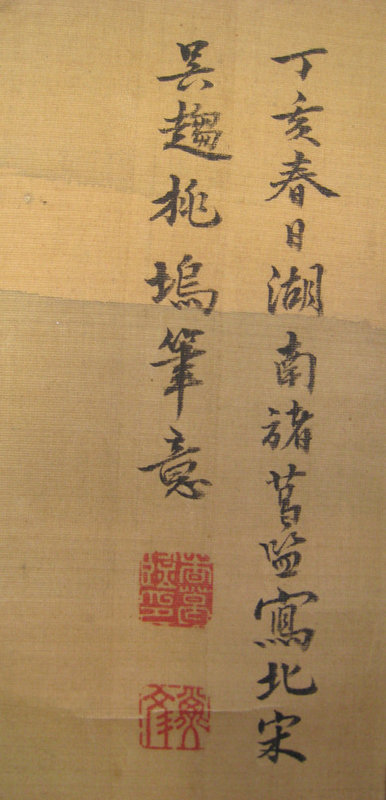 丁亥春日湖南諸葛監寫北宋
吳趨桃塢筆意